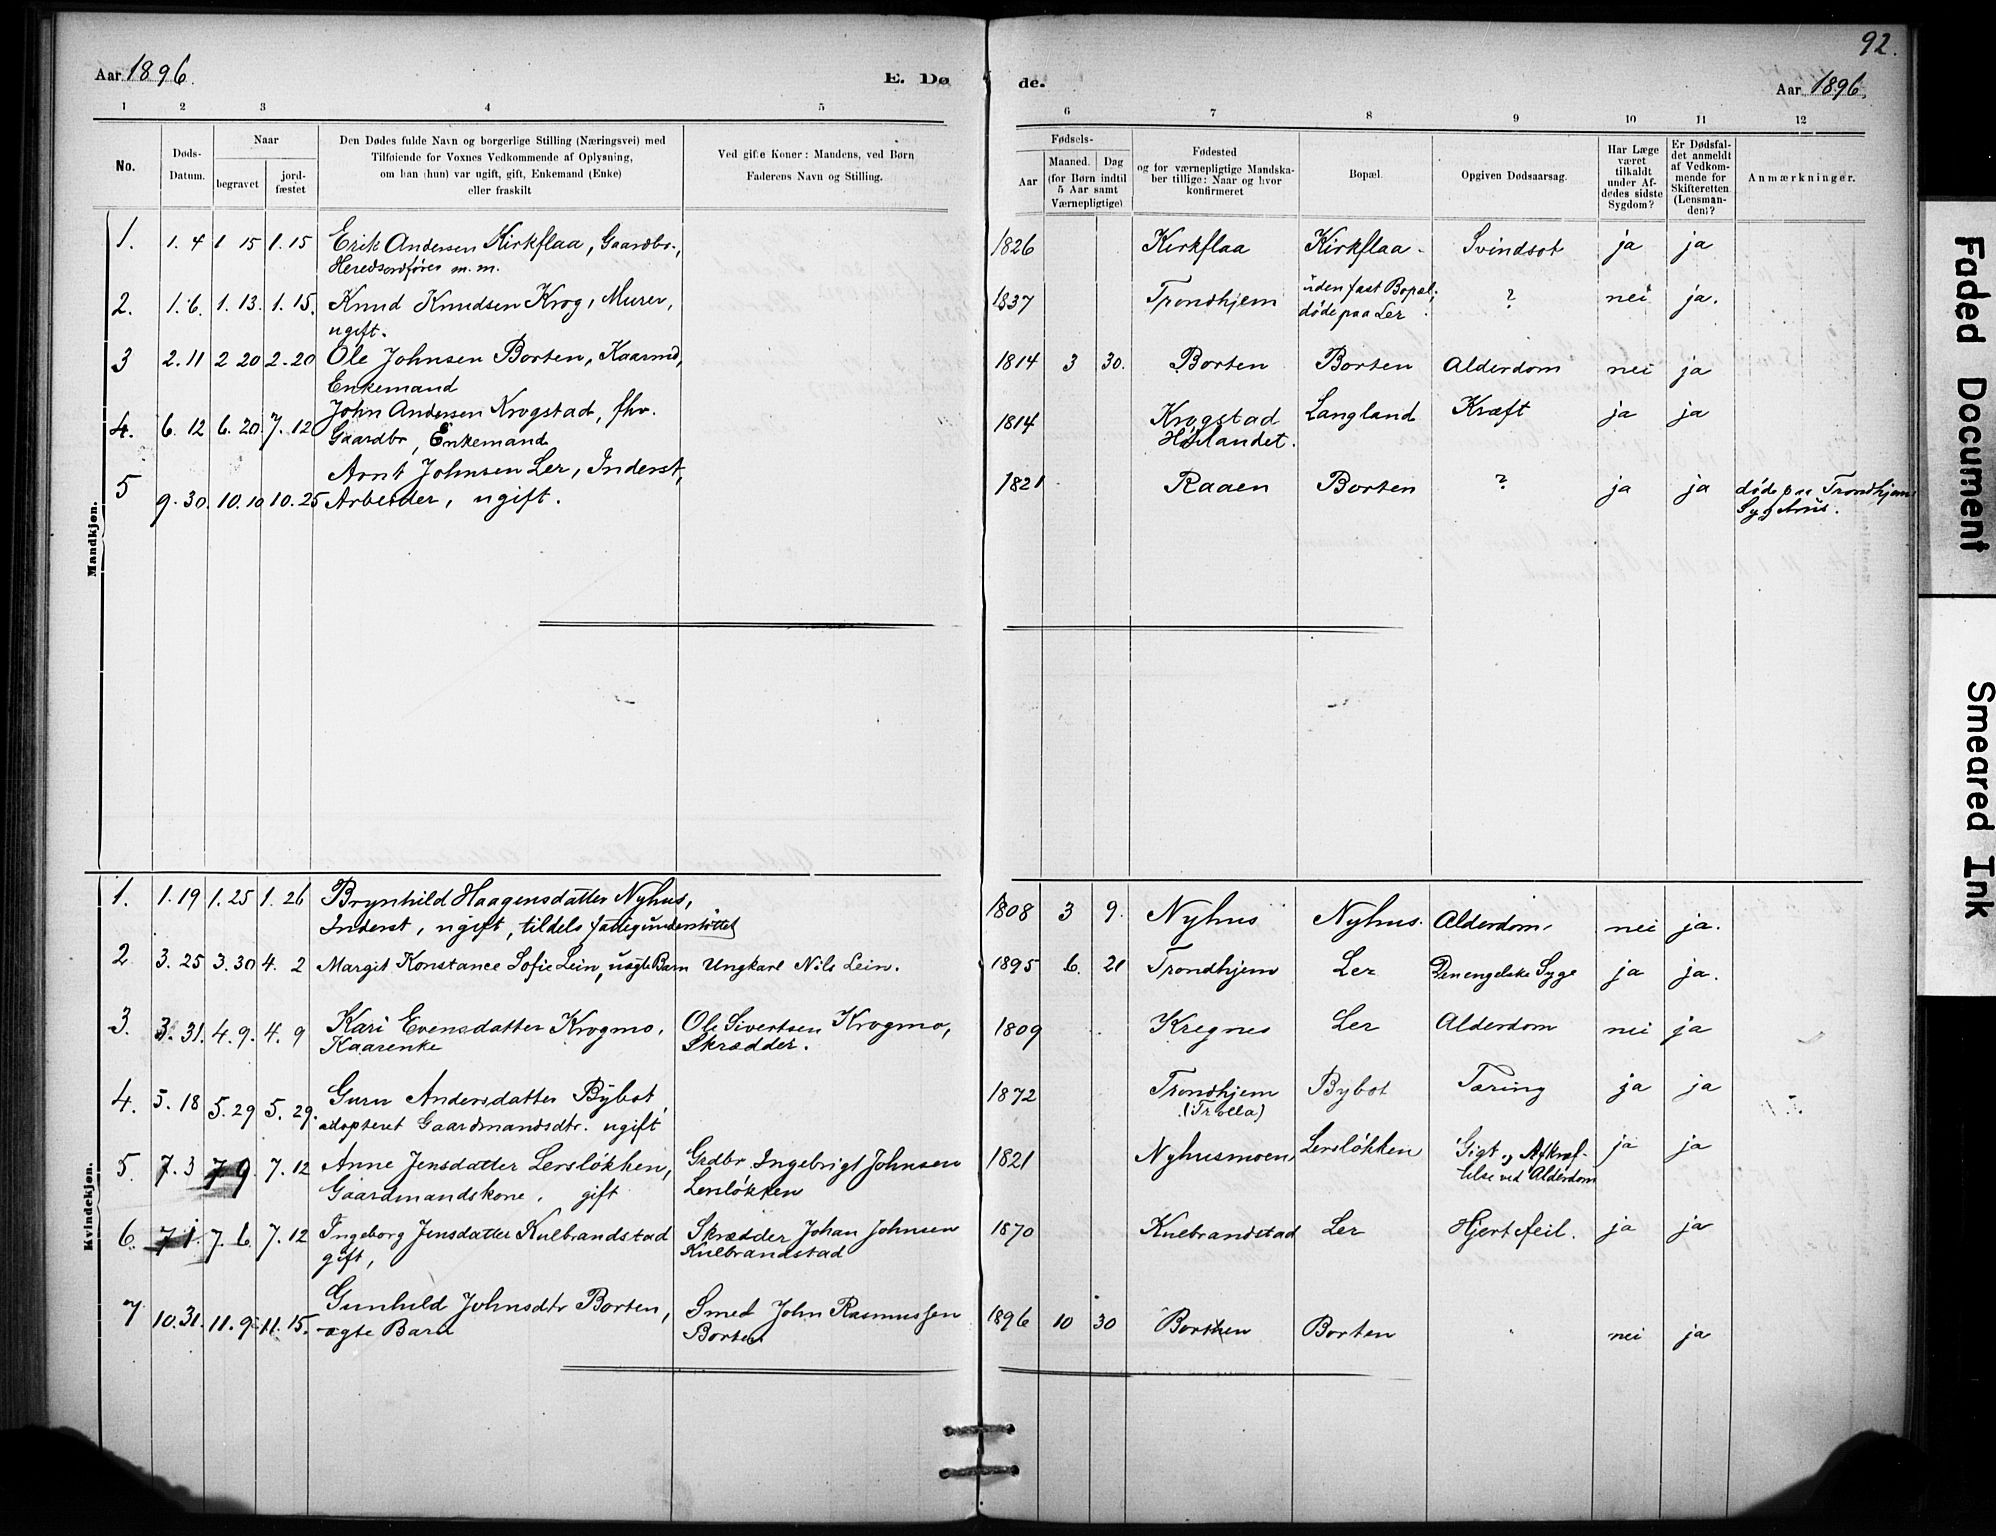 92.
Aar 1896.
E. Dø
de.
Aar 1896.
1 2 3 4 5
6 7 8 9 10 11 12
No.
Døds-
Datum.
Naar
begravet
jord-
fæstet
Den Dødes fulde Navn og borgerlige Stilling (Næringsvei) med
Tilføiende for Voxnes Vedkommende af Oplysning,
om han (hun) var ugift, gift, Enkemand (Enke)
eller fraskilt
Ved gifte Koner: Mandens, ved Børn
Faderens Navn og Stilling.
Fødsels-
Aar
Maaned. Dag
(for Børn indtil
5 Aar samt
Værnepligtige)
Fødested
og for værnepligtige Mandska-
ber tillige: Naar og hvor
konfirmeret
Bopæl.
Opgiven Dødsaarsag.
Har Læge
været
tilkaldt
under Af-
dødes sidste
Sygdom?
Er Dødsfal-
det anmeldt
af Vedkom-
mende for
Skifteretten
(Lensman-
den)?
Anmærkninger.
Mandkjøn.
1. 1.4 1 15 1.15 Erik Andersen Kirkflaa, Gaardbr.,
Heredsordfører m.m.
1826 Kirkflaa Kirkflaa Svindsot ja ja
2. 1.6. 1.13. 1.15. Knud Knudsen Krog, Murer,
ugift.
1837 Trondhjem uden fast Bopæl,
døde paa Ler
? nei ja.
3 2.11 2 20 2.20 Ole Johnsen Borten, Kaarmd,
Enkemand
1814 3 30. Borten Borten Alderdom nei ja
4. 6.12 6.20 7.12 John Andersen Krogstad, fhv.
Gaardbr, Enkemand
1814 Krogstad
Hølandet.
Langland Kræft ja ja
5 9.30. 10.10 10.25 Arnt Johnsen Ler, Inderst,
Arbeider, ugift.
1821 Raaen Borten ? ja ja døde paa Trondhjems
Sygehus.
Kvindekjøn.
1. 1.19 1.25 1.26 Brynhild Haagensdatter Nyhus,
Inderst, ugift, tildels fattigunderstøttet
1808 3 9. Nyhus Nyhus. Alderdom, nei ja.
2 3.25 3.30 4.2 Margit Konstance Sofie Lein, uægte Barn Ungkarl Nils Lein.
1895 6. 21 Trondhjem Ler Den engelske Syge ja ja.
3. 3.31. 4.9. 4.9 Kari Evensdatter Krogmo,
Kaarenke
Ole Sivertsen Krogmo,
Skrædder.
1809 Kregnes Ler Alderdom nei ja
4. 5.18 5.29 5.29. Guru Andersdatter Bybot,
adopteret Gaardmandsdtr. ugift
1872 Trondhjem
(Trolla)
Bybot Tæring ja ja
5. 7.3 7 9. 7.12 Anne Jensdatter Lersløkken,
Gaardmandskone, gift
Grdbr. Ingebrigt Johnsen
Lersløkken
1821 Nyhusmoen Lersløkken Gigt og Afkræf-
telse ved Alderdom
ja ja
6. 7 1. 7.6 7.12 Ingeborg Jensdatter Kulbrandstad
gift,
Skrædder Johan Johnsen
Kulbrandstad
1870 Kulbrandstad Ler Hjertefeil. ja ja
7 10.31. 11.9 11.15. Gunhild Johnsdtr Borten,
ægte Barn
Smed John Rasmussen
Borten
1896 10 30 Borten Borten " nei ja
Faded Document
Smeared Ink